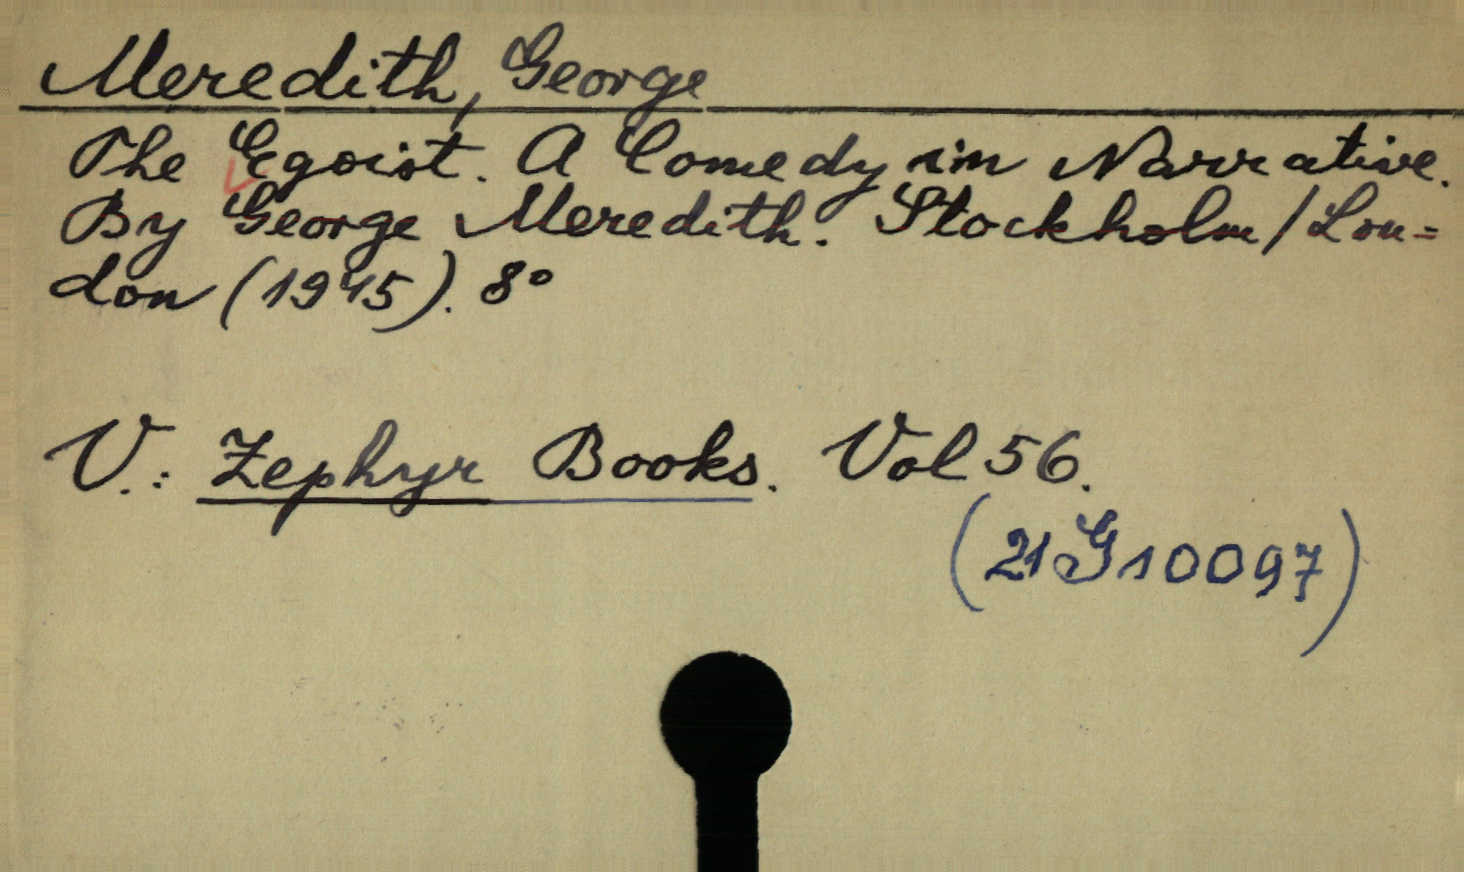 Meredith, George
The Egoist. A Comedy in Narrative.
By George Meredith. Stockholm/Lon=
don (1945). 8°
V.: Zephyr Books. Vol 56.
(21 G 10097)